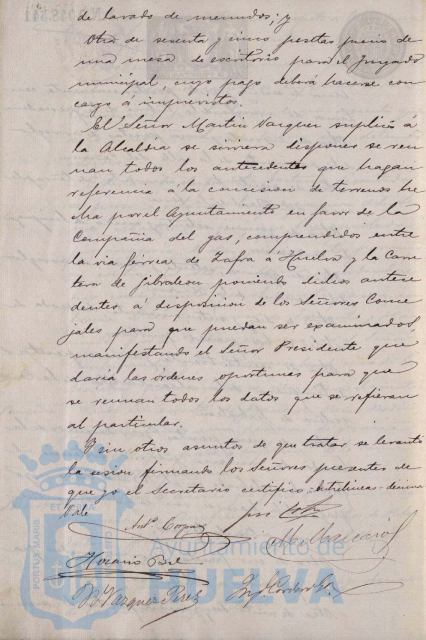 de lavado de menudos; y
Otra de sesenta y cinco pesetas precio de
una mesa de escritorio para el Juzgado
municipal, cuyo pago deberá hacerse con
cargo á imprevistos.
El Señor Martin Vazquez suplicó á
la Alcaldia se sirviera disponer se reu
nan todos los antecedentes que hagan
referencia á la concesion de terrenos he
cha por el Ayuntamiento en favor de la
Compañia del gas, comprendidos entre
la via férrea de Zafra á Huelva y la Carre
tera de Gibraleon poniendo dichos antece
dentes á disposicion de los Señores Conce
jales para que puedan ser examinados,
manifestando el Señor Presidente que
daria las órdenes oportunas para que
se reunan todos los datos que se refieran
al particular.
Y sin otros asuntos de que tratar se levantó
la sesion firmando los Señores presentes de
que yo el Secretario certifico. Entrelineas
Vale
Horacio Bel
Vazquez Perez
PORTUS MARIS ET
Ayuntamiento de
HUELVA